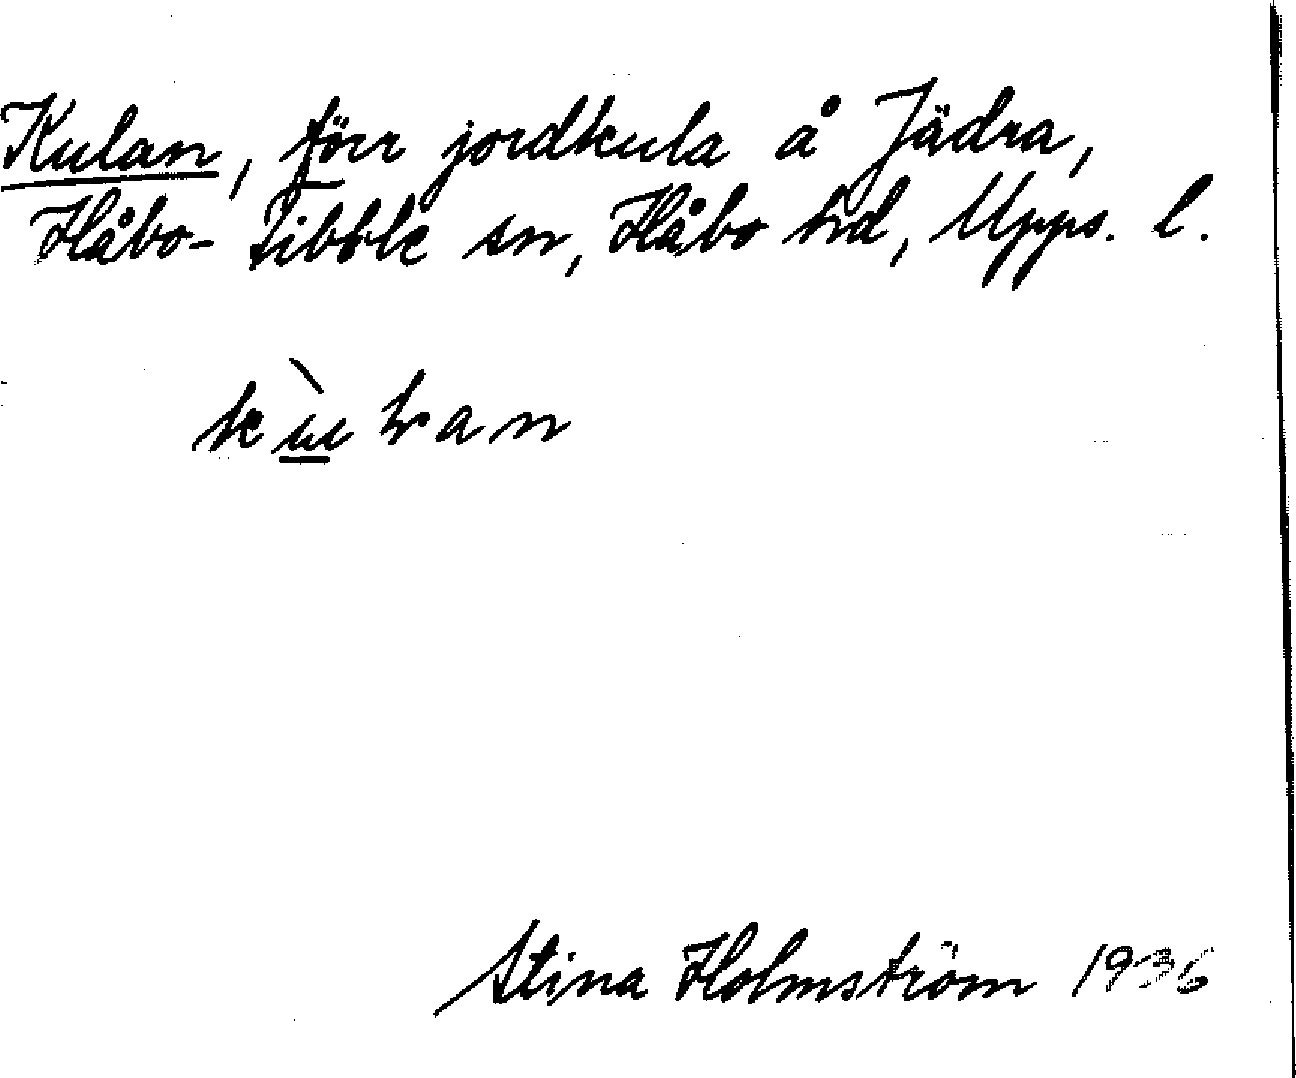 Kulan, förr jordkula å Jädra,
Håbo-Tibble sn, Håbo hd, Upps. l.
Stina Holmström 1936